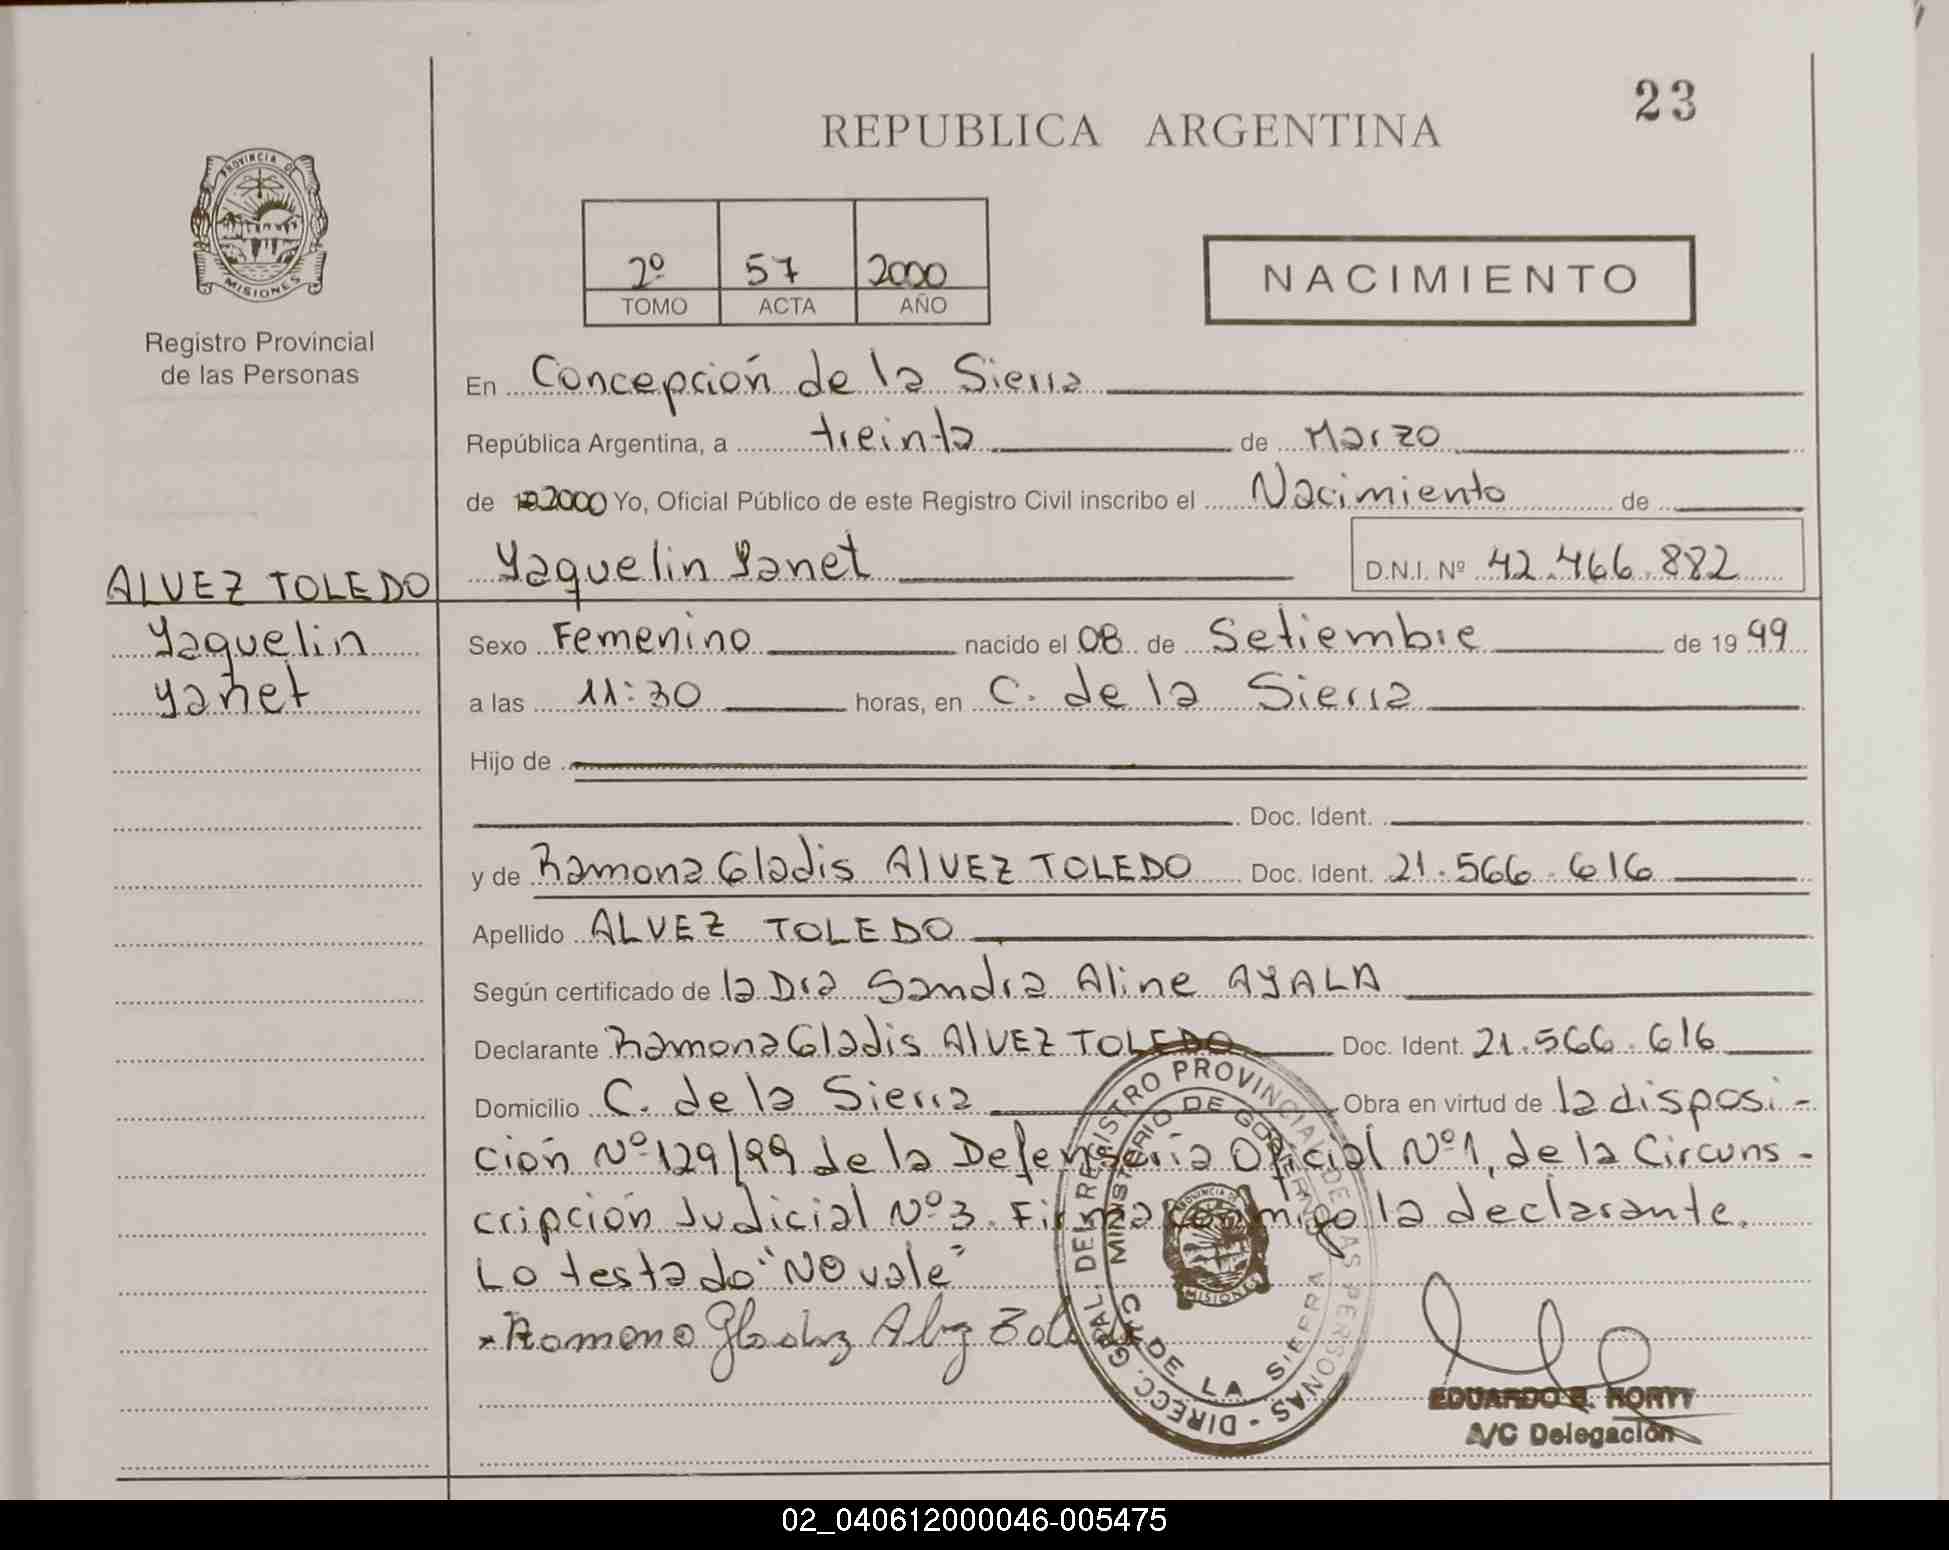 23
REPUBLICA ARGENTINA
PROVINCIA DE
MISIONES
2º 57 2000
TOMO ACTA AÑO
NACIMIENTO
Registro Provincial
de las Personas
En Concepción de la Sierra
República Argentina, a treinta de Marzo
de 2000 Yo, Oficial Público de este Registro Civil inscribo el Nacimiento de
Yaquelin Yanet D.N.I. Nº 42.466.882
ALVEZ TOLEDO
Yaquelin
Yanet
Sexo Femenino nacido el 08 de Setiembre de 1999
a las 11:30 horas, en C. de la Sierra
Hijo de
Doc. Ident.
y de Ramona Gladis AlVEZ TOLEDO Doc. Ident. 21.566.616
Apellido ALVEZ TOLEDO
Según certificado de la Dra Sandra Aline AYALA
Declarante Ramona Gladis AlVEZ TOLEDO Doc. Ident. 21.566.616
Domicilio C. de la Sierra Obra en virtud de la disposi-
ción Nº 129/99 de la Defensoría Oficial Nº 1, de la Circuns-
cripción Judicial Nº 3. Firma conmigo la declarante.
Lo testado "NO vale"
Romona
DIRECC. GRAL. DEL REGISTRO PROVINCIAL DE LAS PERSONAS -
MINISTERIO DE GOBIERNO
C. DE LA SIERRA
PROVINCIA DE
MISIONES
EDUARDO
A/C Delegación
02_040612000046-005475